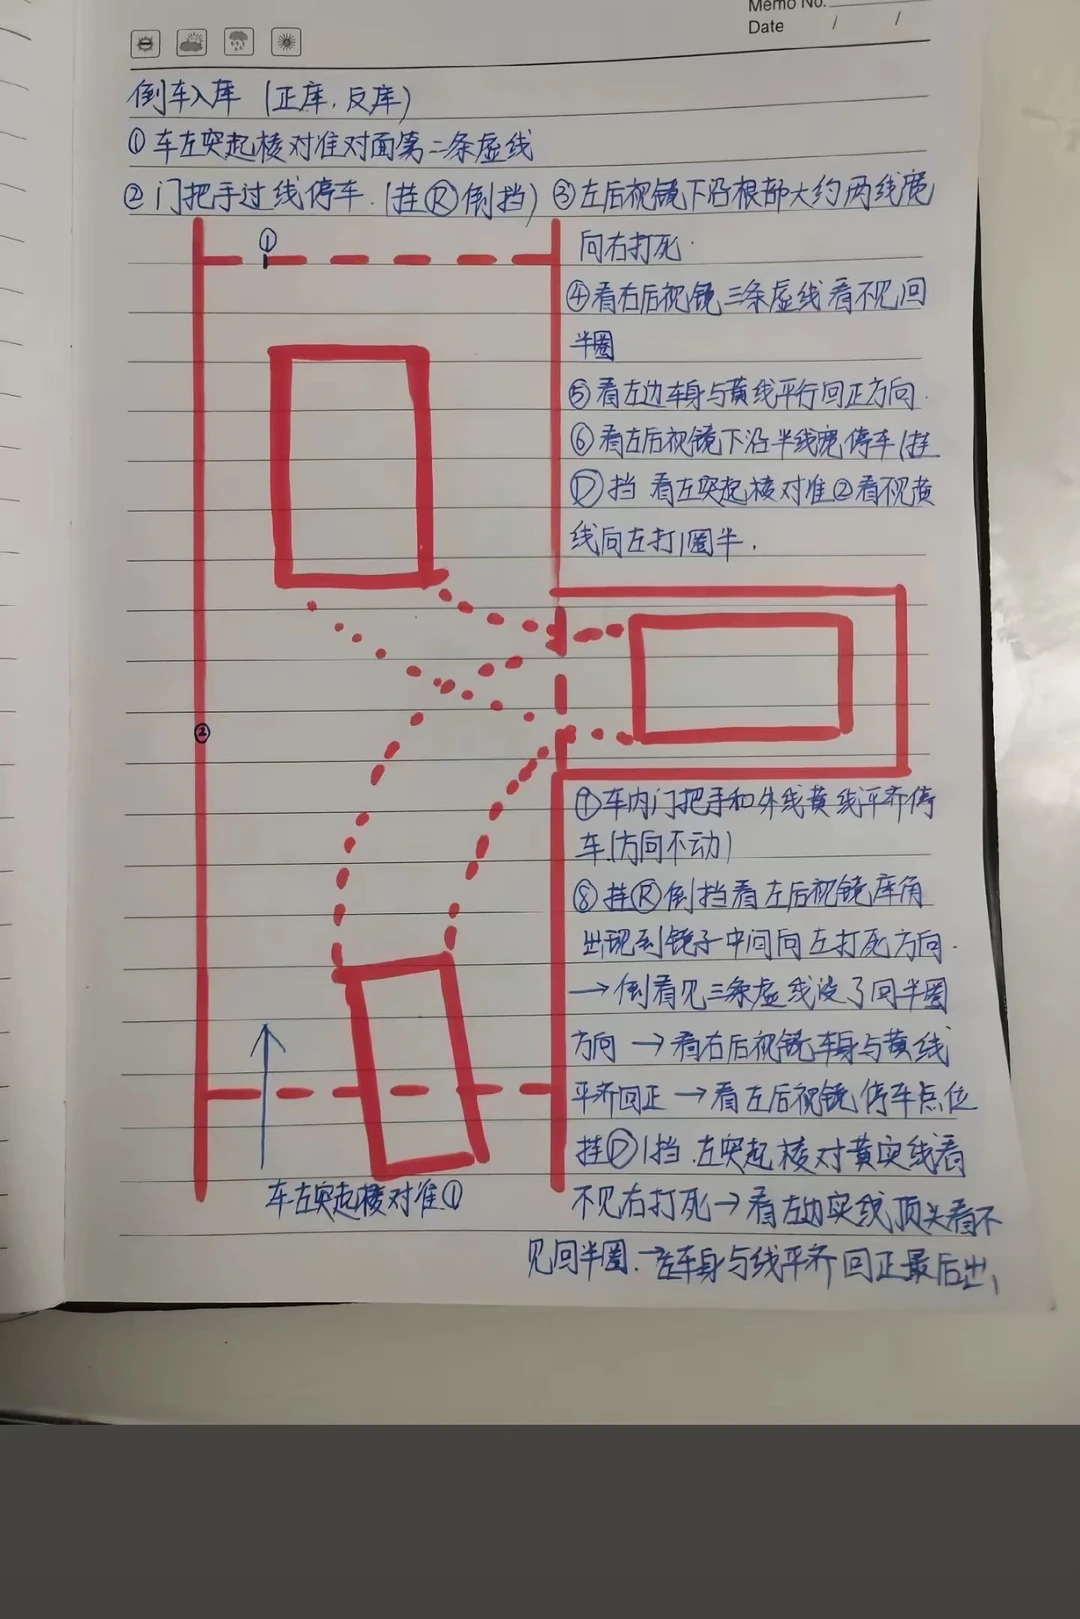 Memo No.
Date / /
倒车入库 (正库,反库)
①车左突起棱对准对面第二条虚线
②门把手过线停车.(挂Ⓡ倒挡)
③左后视镜下沿根部大约两线宽
向右打死.
④看右后视镜三条虚线看不见回
半圈
⑤看左边车身与黄线平行回正方向.
⑥看左后视镜下沿半线宽停车(挂
Ⓓ挡 看左突起棱对准②看不见黄
线向左打1圈半.
①
②
⑦车内门把手和外线黄线平齐停
车.(方向不动)
⑧挂Ⓡ倒挡看左后视镜库角
出现到镜子中间向左打死方向.
→倒看见三条虚线没了回半圈
方向 →看右后视镜车身与黄线
平齐回正→看左后视镜停车点位
挂Ⓓ1挡.左突起棱对黄实线看
不见右打死→看左边实线顶头看不
见回半圈.→左车身与线平齐 回正最后出,
车左突起棱对准①